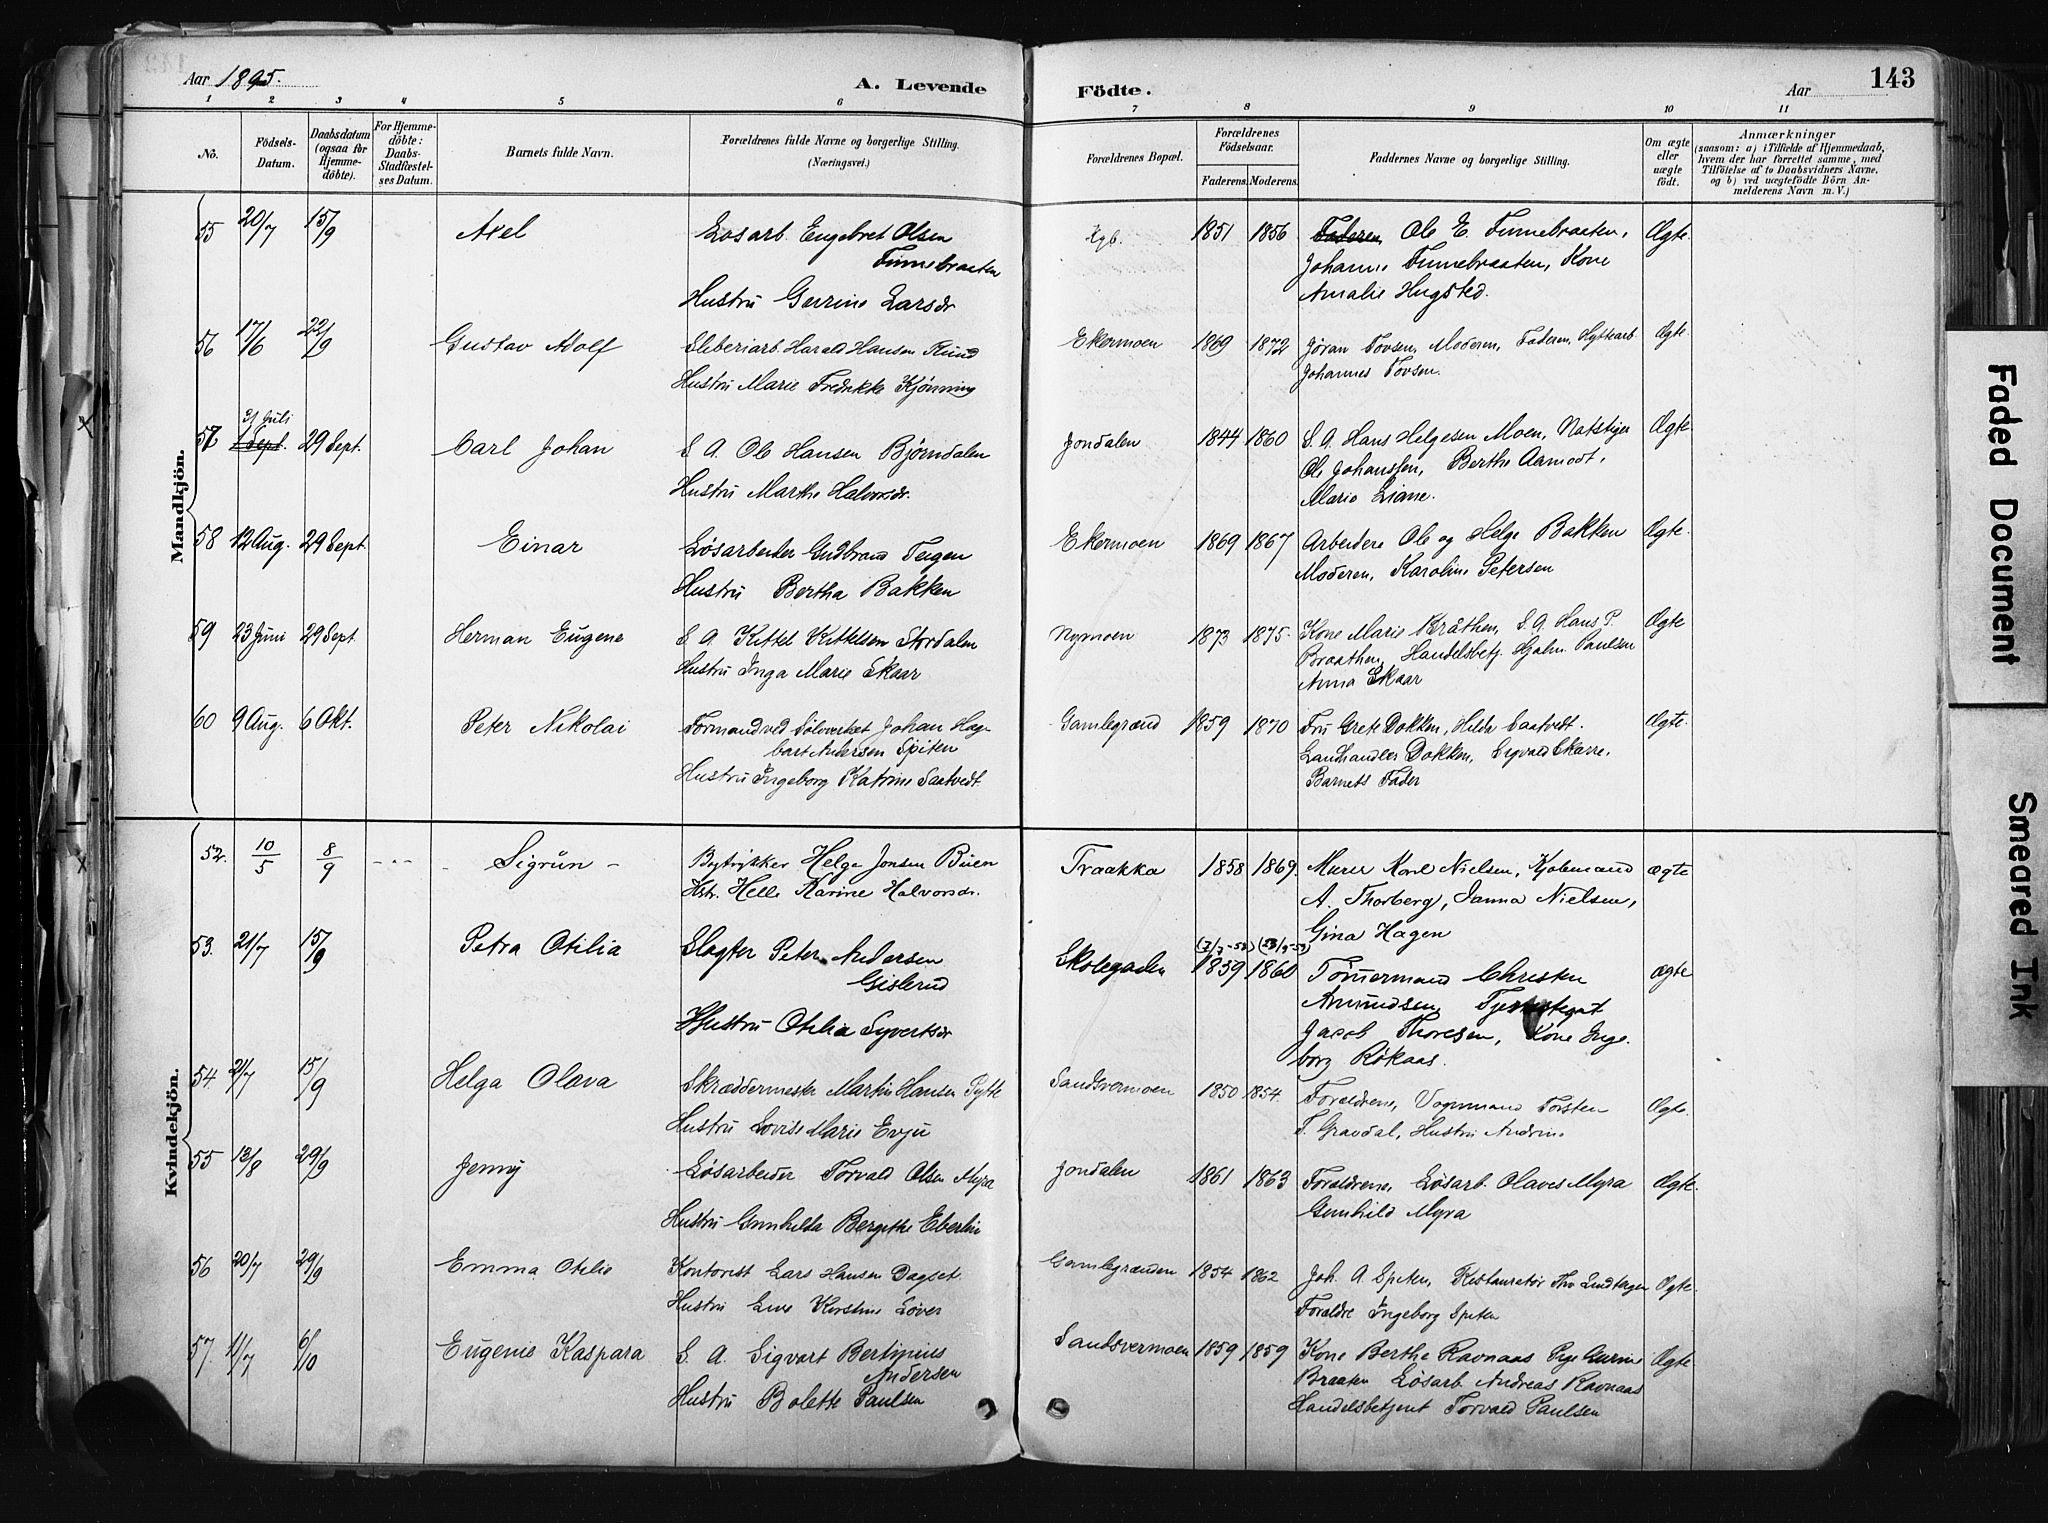 Aar 1895.
A. Levende
Födte.
Aar
143
1 2 3 4 5 6 7 8 9 10 11
No.
Födsels-Datum.
Daabsdatum (ogsaa for Hjemmedöbte).
For Hjemmedöbte: Daabs-Stadfæstelses Datum.
Barnets fulde Navn.
Forældrenes fulde Navne og borgerlige Stilling. (Næringsvei.)
Forældrenes Bopæl.
Forældrenes Födselsaar.
Faderens. Moderens.
Faddernes Navne og borgerlige Stilling.
Om ægte eller uægte födt.
Anmærkninger
(saasom: a) i Tilfælde af Hjemmedaab, hvem der har forrettet samme, med Tilföielse af to Daabsvidners Navne, og b) ved uægtefödte Börn Anmelderens Navn m. V.)
Mandkjön.
55 20/7 15/9 Axel Løsarb. Engebret Olsen Kgb. 1851 1856 Faderen, Ole E. Finnebraaten, Ægte.
Finnebraaten Johanne Finnebraaten, Kone
Hustru Gurine Larsdr Amalie Hugsted.
56 17/6 22/9 Gustav Adolf Sliberiarb. Harald Hansen Rund Ekermoen 1869 1872 Jøran Tovsen, Moderen, Faderen, Hyttearb Ægte
Hustru Marie Fredrikke Kjønning Johannes Tovsen.
31 Juli
57 1 Sept. 29 Sept. Carl Johan S. A. Ole Hansen Bjørndalen Jondalen 1844 1860 S. A. Hans Helgesen Moen, Natstiger Ægte.
Hustru Marthe Halvorsdr. Ole Johanssen, Berthe Aamodt,
Marie Liane.
58 12 Aug. 29 Sept. Einar Løsarbeider Gudbrand Teigen Ekermoen 1869 1867 Arbeidere Ole og Helge Bakken Ægte.
Hustru Bertha Bakken Moderen, Karoline Petersen
59 23 Juni 29 Sept. Herman Eugene S A Kittel Kittelsen Stordalen Nymoen 1873 1875. Kone Marie Bråthen, S. A. Hans P. Ægte
Hustru Inga Marie Skaar Braathen, Handelsbetj. Hjalm. Paulsen
Anna Skaar
60 9 Aug. 6 Okt. Peter Nikolai Formand ved Sølvverket Johan Hag- Gamlegrænd 1859 1870 Fru Grete Dokken, Hilda Saatvedt. Ægte.
bart Andersen Spiten Landhandler Dokken, Sigvald Skarre,
Hustru Ingeborg Katrine Saatvedt. Barnets Fader
Kvindekjön.
52. 10/5 8/9 Sigrun Bogtrykker Helge Jonsen Buen Traakka 1858 1869. Murer Karl Nielsen, Kjøbmand ægte
Hstr. Helle Karine Halvorsdr. A. Thorberg, Janna Nielsen,
Gina Hagen
53. 21/7 15/9 Petra Otilia Slagter Peter Andersen Skolegaden 1859 1860 Tømmermand Christen ægte
Gislerud Amundsen,
Hustru Otilia Syvertsdr Jacob Thoresen, Kone Inge-
borg Røkaas.
54. 21/7 15/9 Helga Olava Skræddermester Martin Hansen Pytte Sandsvermoen 1850 1854. Forældrene, Vognmand Torsten Ægte.
Hustru Lovise Marie Evju T. Gravdal, Hustru Andrine
55 13/8 29/9 Jenny Løsarbeider Torvald Olsen Myra Jondalen 1861 1863 Forældrene, Løsarb. Olaves Myra Ægte.
Hustru Gunhilda Bergithe Eberlin Gunhild Myra
56 20/7 29/9 Emma Otelie Kontorist Lars Hansen Dagset. Gamlegrænden 1854 1862 Joh. A. Speten, Restauratør Ægte.
Hustru Kirstine Løver Forældre Ingeborg Speten
57 11/7 6/10 Eugenie Kaspara S. A. Sigvart Bertinius Sandsvermoen 1859 1859 Kone Berthe Ravnaas Pige Gurine Ægte
Andersen Braaten Løsarb. Andreas Ravnaas
Hustru Bolette Paulsen Handelsbetjent Torvald Paulsen
Faded Document
Smeared Ink